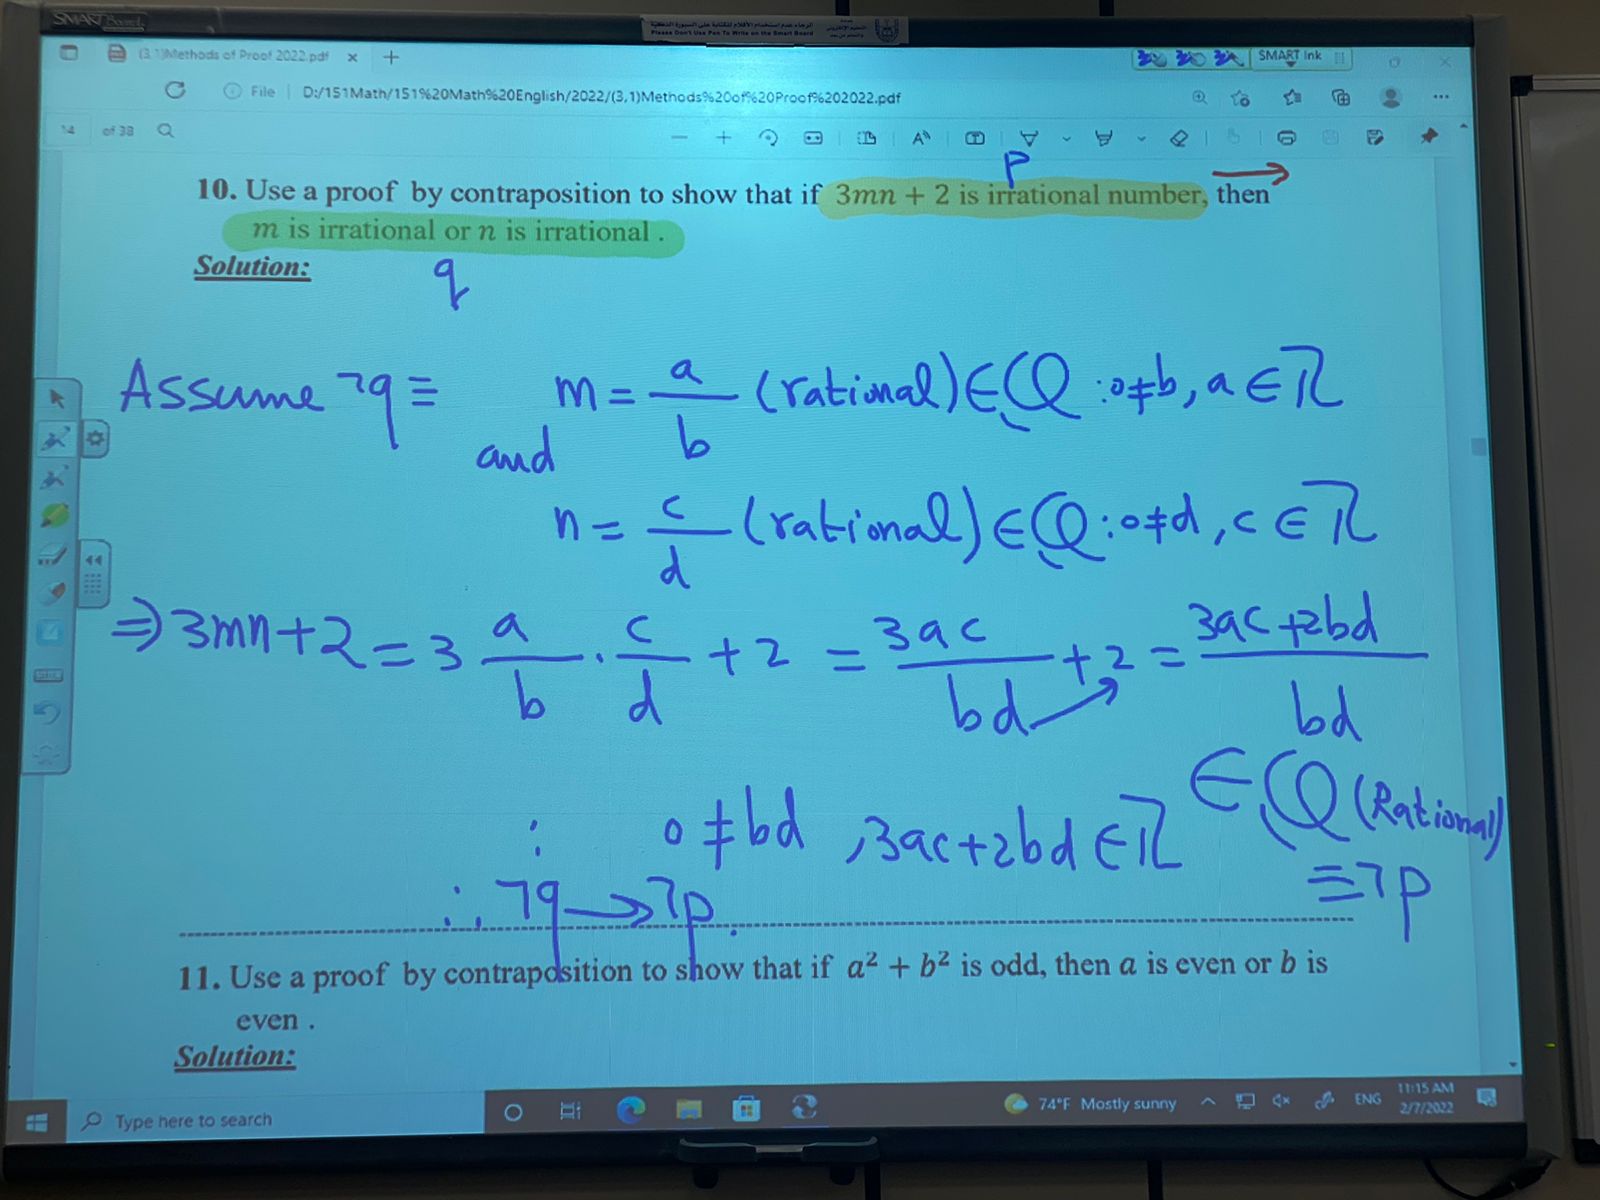 SMART Board
الرجاء عدم استخدام الأقلام للكتابة على السبورة الذكية
Please Don't Use Pen To Write on the Smart Board
(3,1)Methods of Proof 2022.pdf
SMART Ink
File D:/151Math/151%20Math%20English/2022/(3,1)Methods%20of%20Proof%202022.pdf
14 of 38
P
10. Use a proof by contraposition to show that if 3mn + 2 is irrational number, then
m is irrational or n is irrational .
Solution:
q
Assume ¬q ≡ m = a/b (rational) ∈ Q : 0≠b, a ∈ Z
and
n = c/d (rational) ∈ Q : 0≠d, c ∈ Z
⇒ 3mn+2 = 3 a/b . c/d + 2 = 3ac/bd + 2 = 3ac+2bd/bd
∈ Q (Rational)
: 0 ≠ bd , 3ac+2bd ∈ Z
≡ ¬p
∴ ¬q → ¬p.
11. Use a proof by contraposition to show that if a² + b² is odd, then a is even or b is
even .
Solution:
Type here to search
74°F Mostly sunny
ENG
11:15 AM
2/7/2022